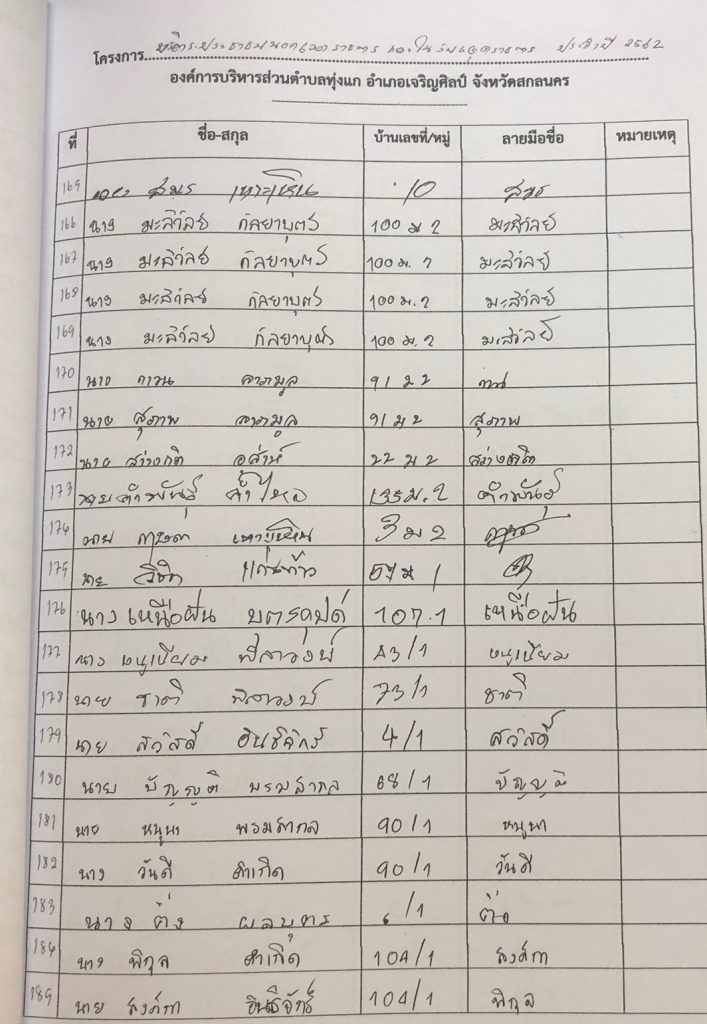 โครงการ บริการประชาชนนอกเวลาราชการ และในวันหยุดราชการ ประจำปี 2562
องค์การบริหารส่วนตำบลทุ่งแก อำเภอเจริญศิลป์ จังหวัดสกลนคร
ที่ ชื่อ-สกุล บ้านเลขที่/หมู่ ลายมือชื่อ หมายเหตุ
165 สมร เหาะเหิน 10 สมร
166 นาง มะลิวัลย์ กัลยาบุตร 100 ม 2 มะลิวัลย์
167 นาง มะลิวัลย์ กัลยาบุตร 100 ม. 2 มะลิวัลย์
168 นาง มะลิวัลย์ กัลยาบุตร 100 ม. 2 มะลิวัลย์
169 นาง มะลิวัลย์ กัลยาบุตร 100 ม. 2 มะลิวัลย์
170 นาง 91 ม 2
171 นาย สุภาพ 91 ม 2 สุภาพ
172 นาย สว่างจิต อุส่าห์ 22 ม 2 สว่างจิต
173 นาย คำพันธุ์ 135 ม. 2 คำพันธุ์
174 นาย เหาะเหิน 3 ม 2
175 นาย แก่นท้าว 57 ม 1
176 นาง เหนือฝัน 107.1 เหนือฝัน
177 นาง หนูเนียม พิลาวงษ์ 73/1 หนูเนียม
178 นาย ชาติ พิลาวงษ์ 73/1 ชาติ
179 นาย สวัสดิ์ อินธิจักร์ 4/1 สวัสดิ์
180 นาย บัญญัติ พรมสากล 68/1 บัญญัติ
181 นาย หนูนา พรมสากล 90/1 หนูนา
182 นาง วันดี คำเกิด 90/1 วันดี
183 นาง ต้อง ผลบุตร 6/1 ต้อง
184 นาง พิกุล คำเกิด 104/1 ลงค์กา
185 นาย ลงค์กา อินธิจักร์ 104/1 พิกุล